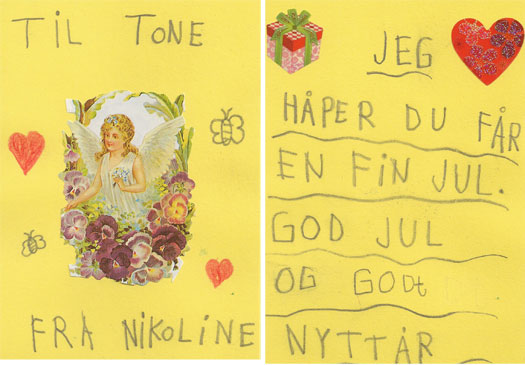 TIL TONE
FRA NIKOLINE
JEG
HÅPER DU FÅR
EN FIN JUL.
GOD JUL
OG GODt
NYTTÅR